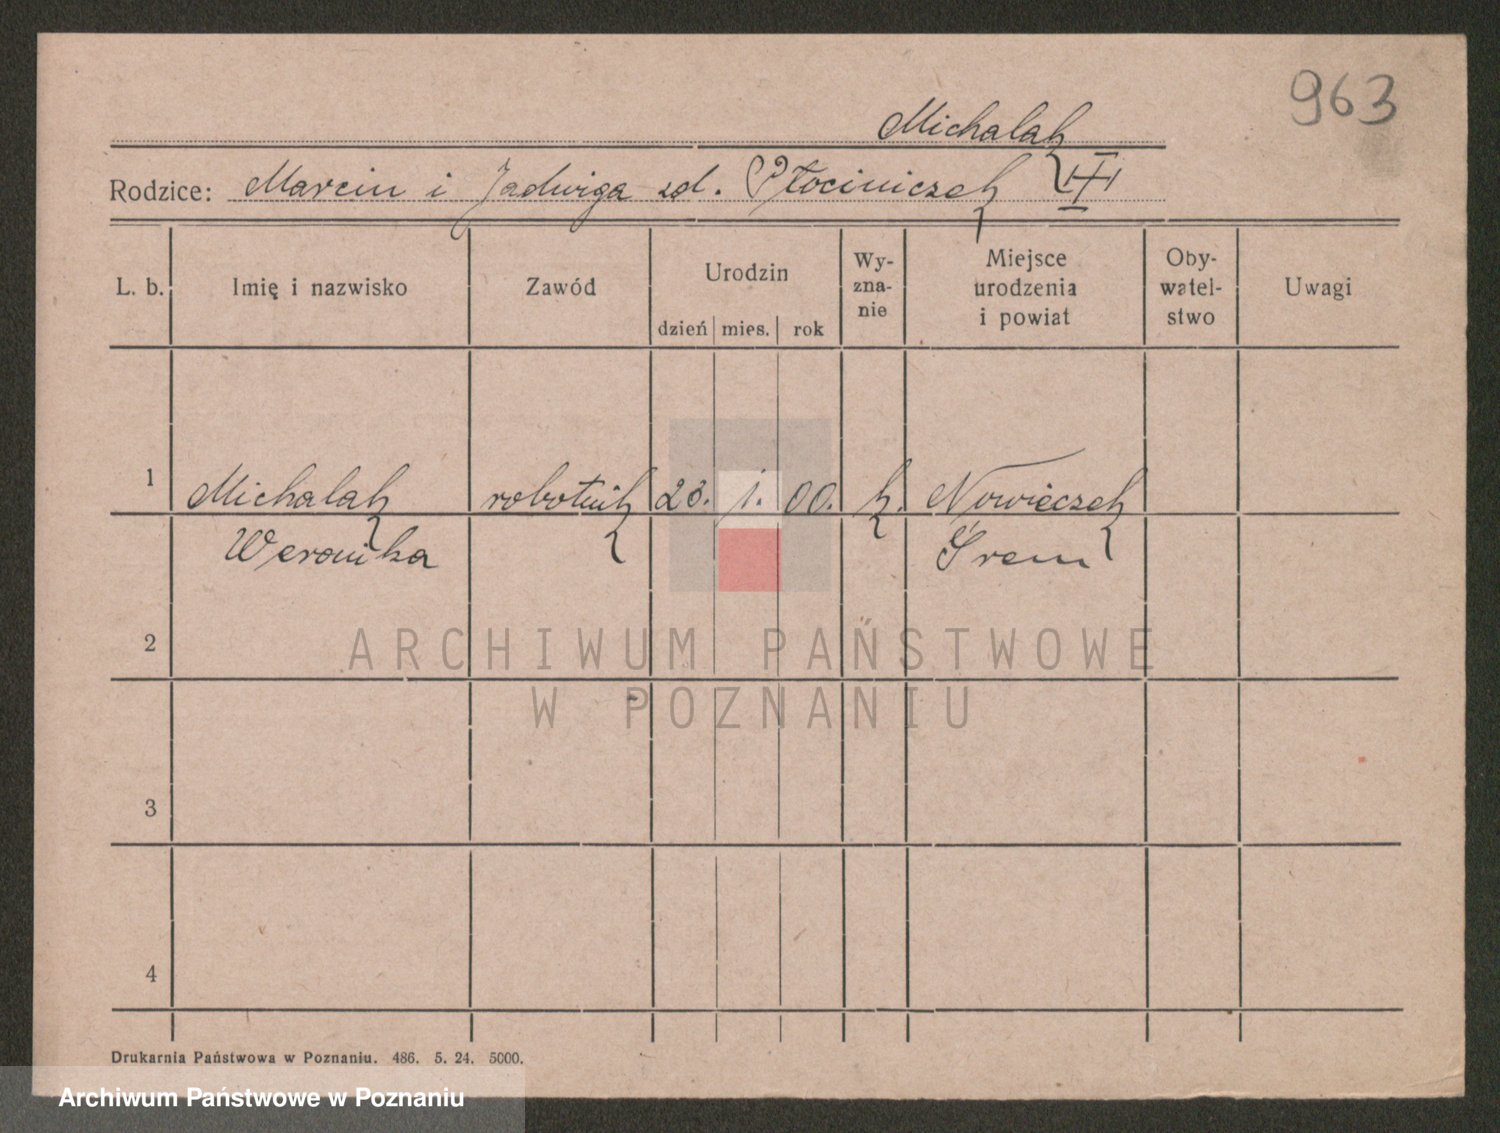 963
Michalak
Rodzice: Marcin i Jadwiga zd. Płociniczak
L. b. Imię i nazwisko Zawód Urodzin dzień mies. rok Wy-zna-nie Miejsce urodzenia i powiat Oby-watel-stwo Uwagi
1 Michalak robotnik 23. 1. 00. k. Nowieczek
Weronika Śrem
2
ARCHIWUM PAŃSTWOWE
W POZNANIU
3
4
Drukarnia Państwowa w Poznaniu. 486. 5. 24. 5000.
Archiwum Państwowe w Poznaniu